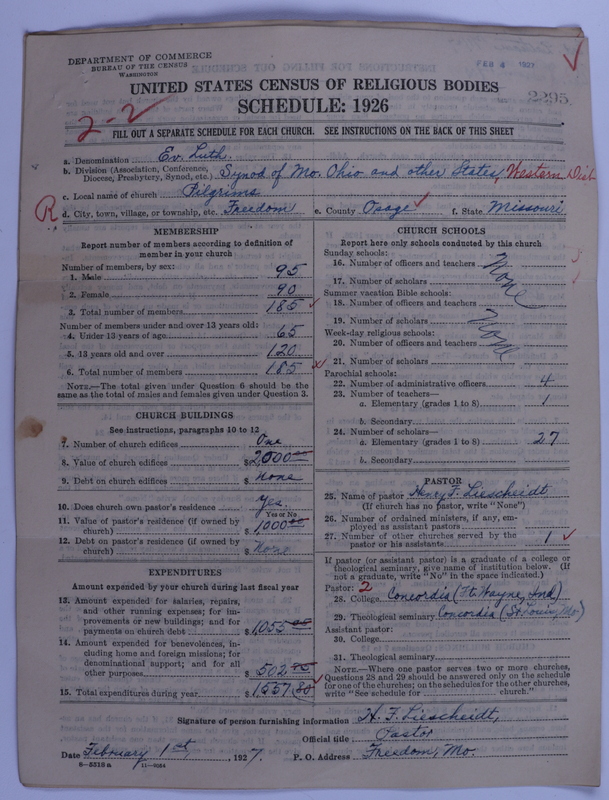 DEPARTMENT OF COMMERCE
BUREAU OF THE CENSUS
WASHINGTON
FEB 4 1927
UNITED STATES CENSUS OF RELIGIOUS BODIES
SCHEDULE: 1926
2295
2-2
FILL OUT A SEPARATE SCHEDULE FOR EACH CHURCH. SEE INSTRUCTIONS ON THE BACK OF THIS SHEET
a. Denomination Ev. Luth.
b. Division (Association, Conference, Diocese, Presbytery, Synod, etc.) Synod of Mo. Ohio and other States, Western Dist
c. Local name of church Pilgrims
R d. City, town, village, or township, etc. Freedom e. County Osage f. State Missouri
MEMBERSHIP
Report number of members according to definition of
member in your church
Number of members, by sex:
1. Male 95
2. Female 90
3. Total number of members 185
Number of members under and over 13 years old:
4. Under 13 years of age 65
5. 13 years old and over 120
6. Total number of members 185
NOTE.—The total given under Question 6 should be the
same as the total of males and females given under Question 3.
CHURCH BUILDINGS
See instructions, paragraphs 10 to 12
7. Number of church edifices One
8. Value of church edifices $2000.00
9. Debt on church edifices $ None
10. Does church own pastor's residence Yes.
Yes or No
11. Value of pastor's residence (if owned by
church) $1000.00
12. Debt on pastor's residence (if owned by
church) $ None
EXPENDITURES
Amount expended by your church during last fiscal year
13. Amount expended for salaries, repairs,
and other running expenses; for im-
provements or new buildings; and for
payments on church debt $1055
14. Amount expended for benevolences, in-
cluding home and foreign missions; for
denominational support; and for all
other purposes $502
15. Total expenditures during year $1557.80
CHURCH SCHOOLS
Report here only schools conducted by this church
Sunday schools:
16. Number of officers and teachers None
17. Number of scholars
Summer vacation Bible schools:
18. Number of officers and teachers
19. Number of scholars None
Week-day religious schools:
20. Number of officers and teachers
21. Number of scholars
Parochial schools:
22. Number of administrative officers 4
23. Number of teachers—
a. Elementary (grades 1 to 8) 1
b. Secondary
24. Number of scholars—
a. Elementary (grades 1 to 8) 27
b. Secondary
PASTOR
25. Name of pastor Henry F. Liescheidt
(If church has no pastor, write "None")
26. Number of ordained ministers, if any, em-
ployed as assistant pastors
27. Number of other churches served by the
pastor or his assistants 1
If pastor (or assistant pastor) is a graduate of a college or
theological seminary, give name of institution below. (If
not a graduate, write "No" in the space indicated.)
Pastor: 2
28. College Concordia (Ft. Wayne, Ind)
29. Theological seminary Concordia (St. Louis, Mo)
Assistant pastor:
30. College
31. Theological seminary
NOTE.—Where one pastor serves two or more churches,
Questions 28 and 29 should be answered only on the schedule
for one of the churches; on the schedules for the other churches,
write "See schedule for church."
Signature of person furnishing information H. F. Liescheidt,
Official title Pastor
Date February 1st, 1927. P. O. Address Freedom, Mo.
8-5316a 11-9084